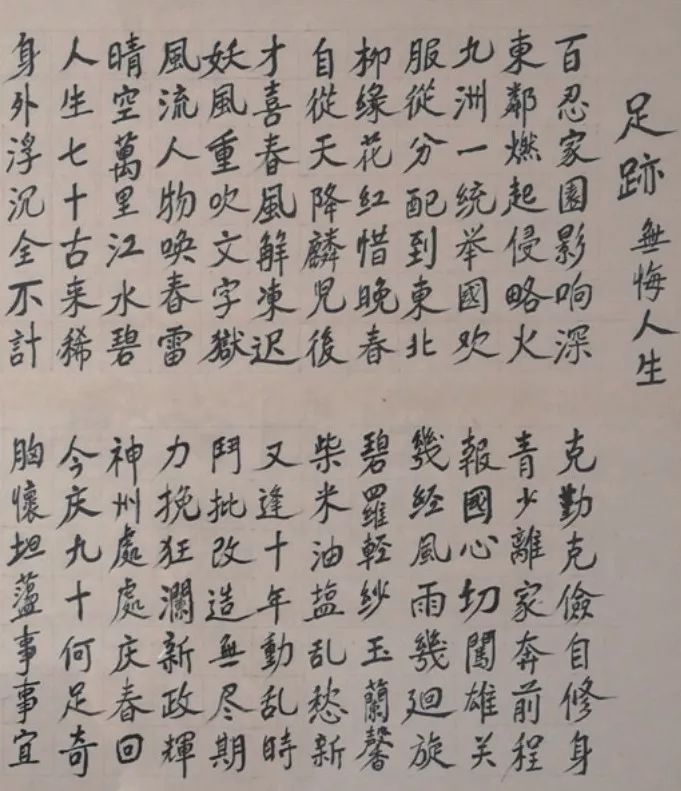 足跡 無悔人生
百忍家園影响深 克勤克儉自修身
東鄰燃起侵略火 青少離家奔前程
九洲一統举國欢 報國心切闖雄关
服從分配到東北 幾经風雨幾廻旋
柳緣花红惜晚春 碧羅輕紗玉蘭馨
自從天降麟児後 柴米油塩乱愁新
才喜春風解凍迟 又逢十年動乱時
妖風重吹文字獄 鬥批改造無尽期
風流人物唤春雷 力挽狂瀾新政輝
晴空萬里江水碧 神州處處庆春回
人生七十古来稀 今庆九十何足奇
身外浮沉全不計 胸懷坦蘯事事宜